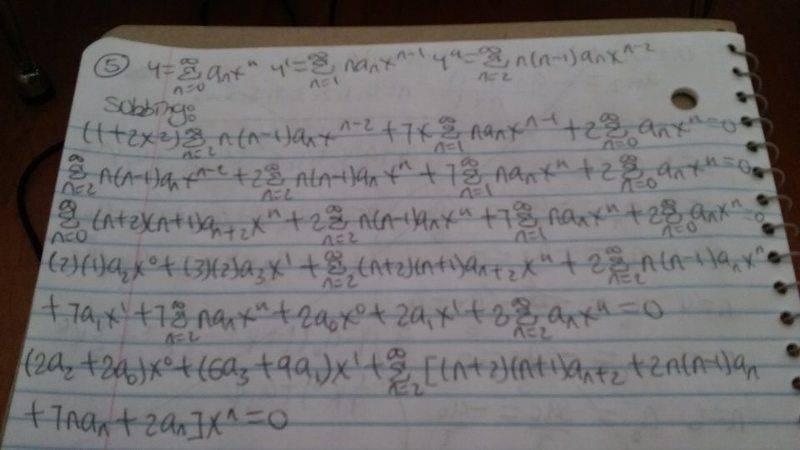 ⑤ y=∑_{n=0}^{∞} aₙxⁿ y'=∑_{n=1}^{∞} naₙx^{n-1} y"=∑_{n=2}^{∞} n(n-1)aₙx^{n-2}
Subbing:
(1+2x2)∑_{n=2}^{∞} n(n-1)aₙx^{n-2} +7x∑_{n=1}^{∞} naₙx^{n-1} +2∑_{n=0}^{∞} aₙxⁿ=0
∑_{n=2}^{∞} n(n-1)aₙx^{n-2} +2∑_{n=2}^{∞} n(n-1)aₙxⁿ +7∑_{n=1}^{∞} naₙxⁿ +2∑_{n=0}^{∞} aₙxⁿ=0
∑_{n=0}^{∞} (n+2)(n+1)a_{n+2}xⁿ +2∑_{n=2}^{∞} n(n-1)aₙxⁿ +7∑_{n=1}^{∞} naₙxⁿ +2∑_{n=0}^{∞} aₙxⁿ=0
(2)(1)a₂x⁰+(3)(2)a₃x¹ +∑_{n=2}^{∞} (n+2)(n+1)a_{n+2}xⁿ +2∑_{n=2}^{∞} n(n-1)aₙxⁿ
+7a₁x¹+7∑_{n=2}^{∞} naₙxⁿ +2a₀x⁰+2a₁x¹+2∑_{n=2}^{∞} aₙxⁿ=0
(2a₂+2a₀)x⁰+(6a₃+9a₁)x¹+∑_{n=2}^{∞} [(n+2)(n+1)a_{n+2}+2n(n-1)aₙ
+7naₙ+2aₙ]xⁿ=0